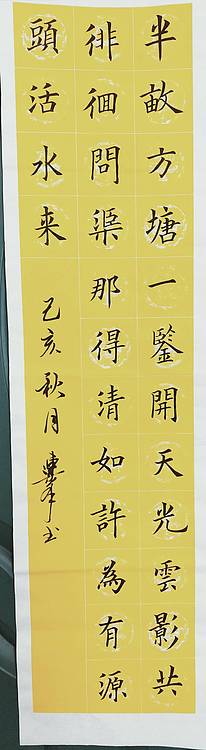 半畝方塘一鑒開天光雲影共
徘徊問渠那得清如許為有源
頭活水来
己亥秋月